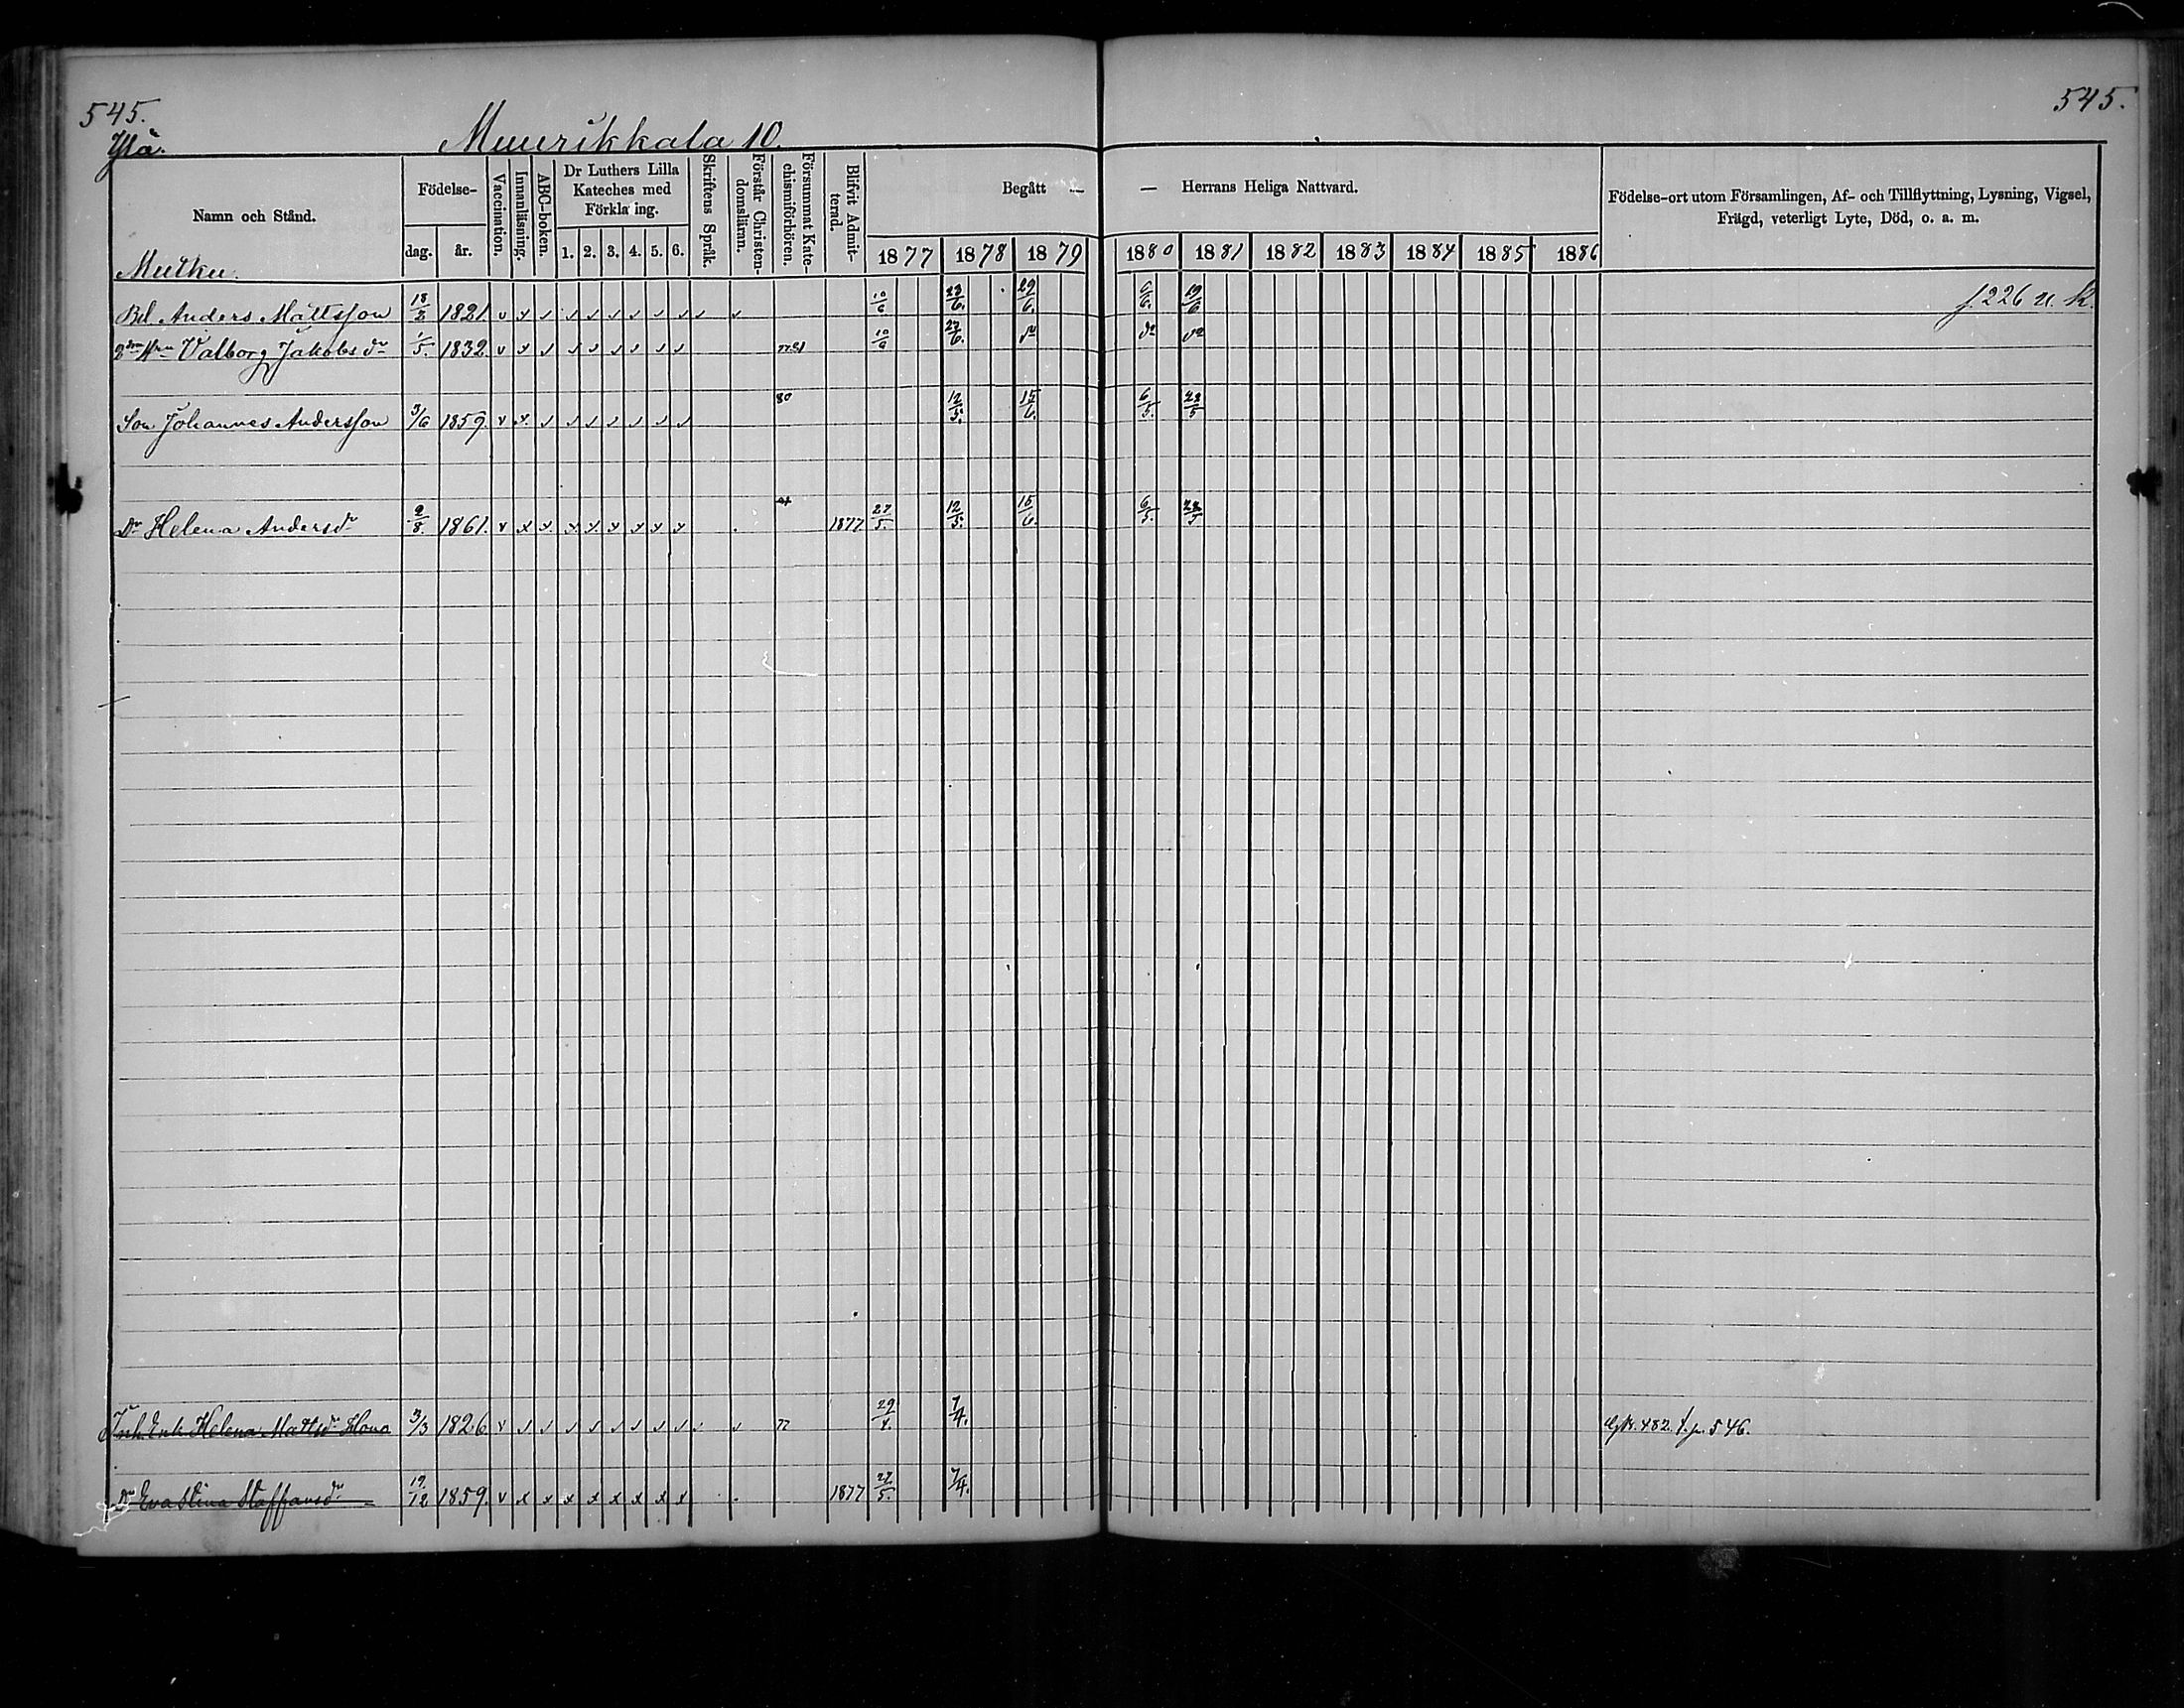 545. 545.
Ylä. Muurikkala 10.
Namn och Stånd. Födelse- dag. år. Vaccination. Innanläsning. ABC-boken. Dr Luthers Lilla Kateches med Förklaing. 1. 2. 3. 4. 5. 6. Skriftens Språk. Förstår Christendomsläran. Försummat Katechismiförhören. Blifvit Admitterad. Begått — — Herrans Heliga Nattvard. 1877 1878 1879 1880 1881 1882 1883 1884 1885 1886 Födelse-ort utom Församlingen, Af- och Tillflyttning, Lysning, Vigsel, Frägd, veterligt Lyte, Död, o. a. m.
Mutku.
Anders Mattsson 1821 10/6 23/6. 29/6. 6/6. 19/6 f 226 n. k.
Valborg Jakobsdr 1/5. 1832. 10/6 23/6. do do do
80
Son Johannes Andersson 3/6 1859. 12/5. 15/6. 6/5. 22/5
Dr Helena Andersdr 2/8. 1861. 1877 27/5. 12/5. 15/6. 6/5. 22/5
Inh. Enk. Helena Mattsdr 3/3 1826 77 29/4. 7/4. 482. f. p. 546.
Dr Eva Stina Staffansdr 19/12 1859. 1877 27/5. 7/4.